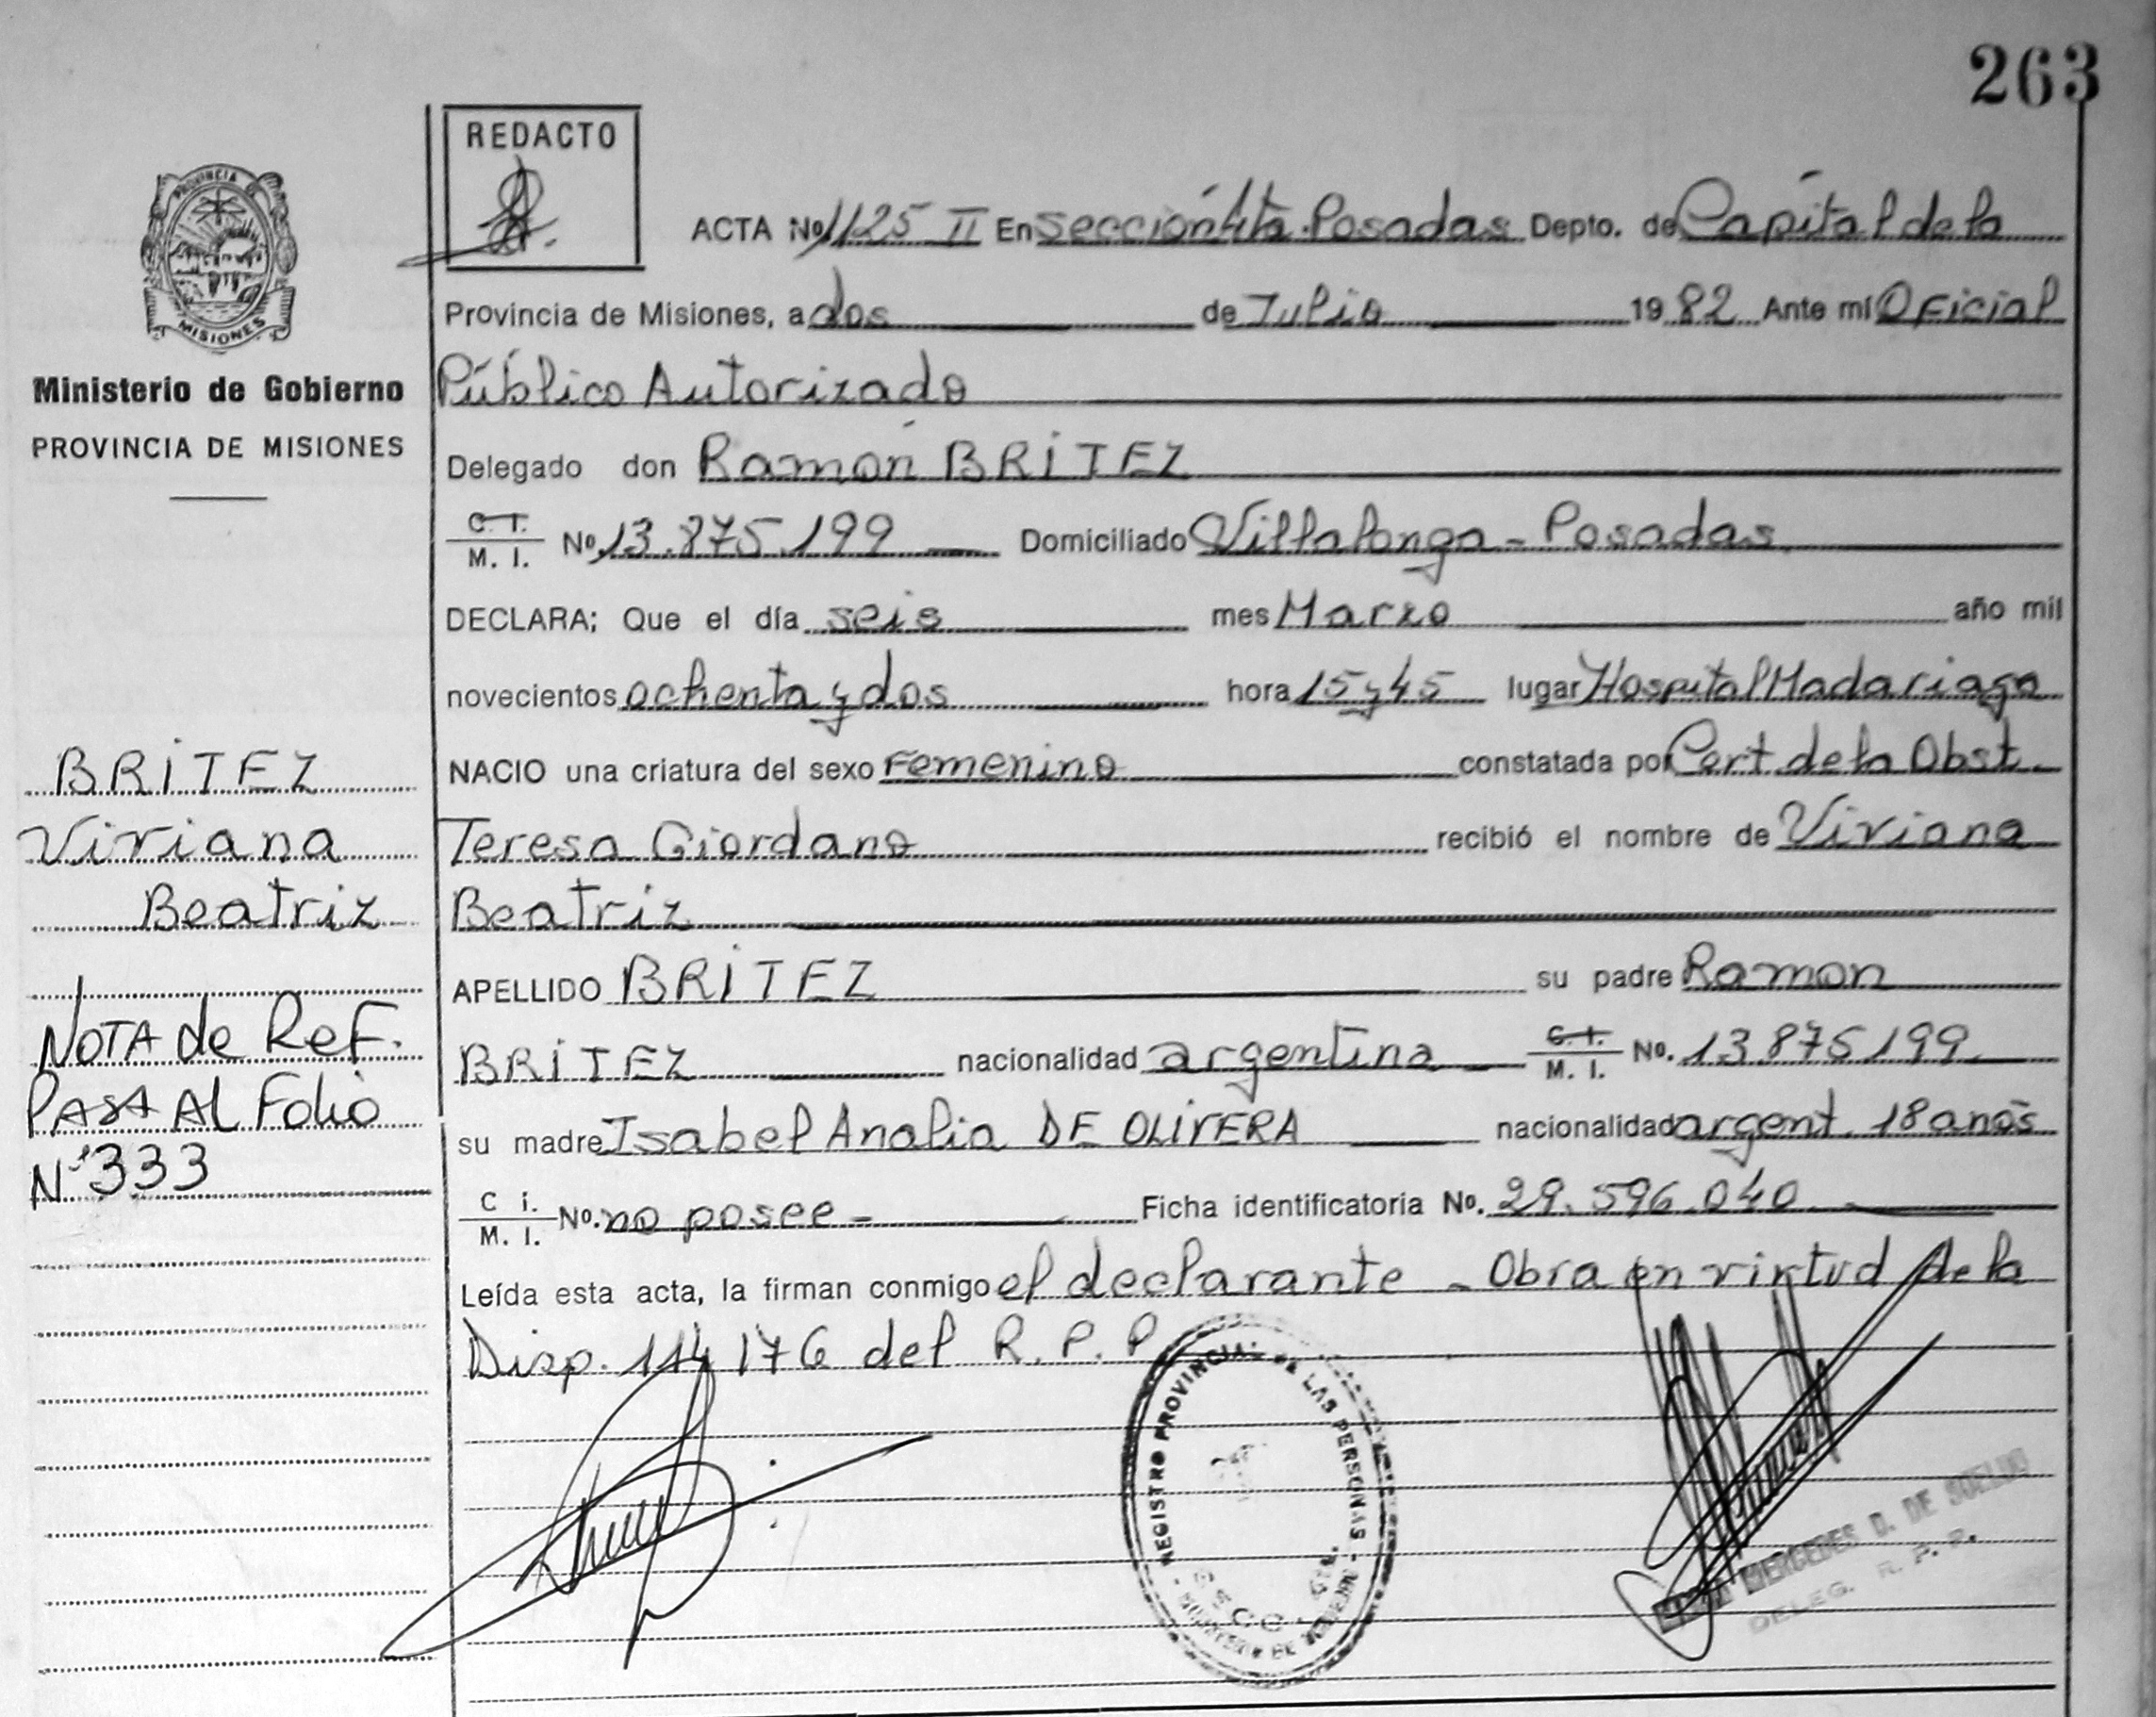 263
REDACTO
PROVINCIA DE
MISIONES
Ministerio de Gobierno
PROVINCIA DE MISIONES
ACTA Nº 1125 II En sección 4ta. Posadas Depto. de Capital de la
Provincia de Misiones, a dos de Julio 1982 Ante mí Oficial
Público Autorizado
Delegado don Ramón BRITEZ
C. I. M. I. Nº 13.875.199 Domiciliado Villalonga - Posadas.
DECLARA; Que el día seis mes Marzo año mil
novecientos ochenta y dos hora 15 y 45 lugar Hospital Madariaga
NACIO una criatura del sexo Femenino constatada por Cert. de la Obst.
Teresa Giordano recibió el nombre de Viviana
Beatriz
APELLIDO BRITEZ su padre Ramon
BRITEZ nacionalidad argentina C. I. M. I. No. 13.875.199
su madre Isabel Analia DE OLIVERA nacionalidad argent. 18 años
C I. M. I. Nº. no posee - Ficha identificatoria Nº. 29.596.040
Leída esta acta, la firman conmigo el declarante - Obra en virtud de la
Disp. 114/76 del R. P. P.
BRITEZ
Viviana
Beatriz
NOTA de Ref.
PASA AL Folio
Nº 333
REGISTRO PROVINCIAL DE LAS PERSONAS
MERCEDES D. DE
DELEG. R. P. P.